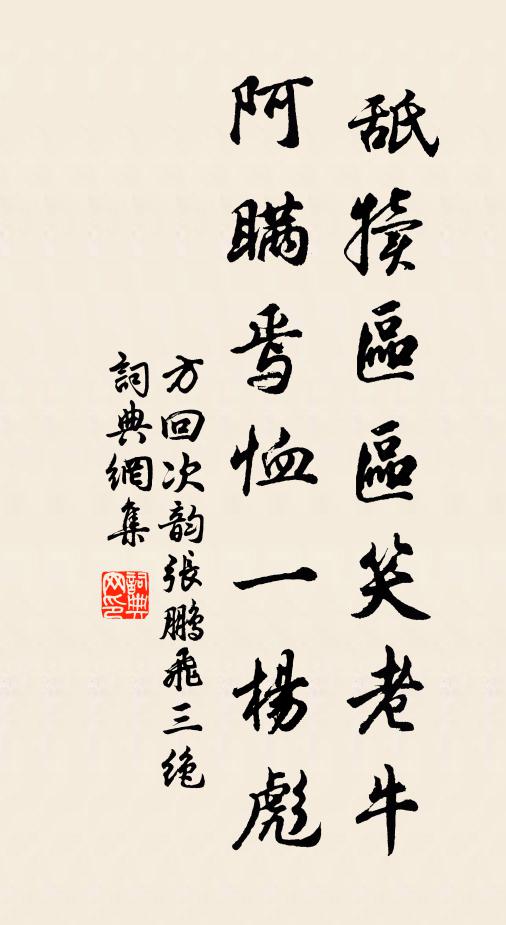 舐犢區區笑老牛
阿瞞焉恤一楊彪
方回次韵張鵬飛三绝
詞典網集
詞典网印